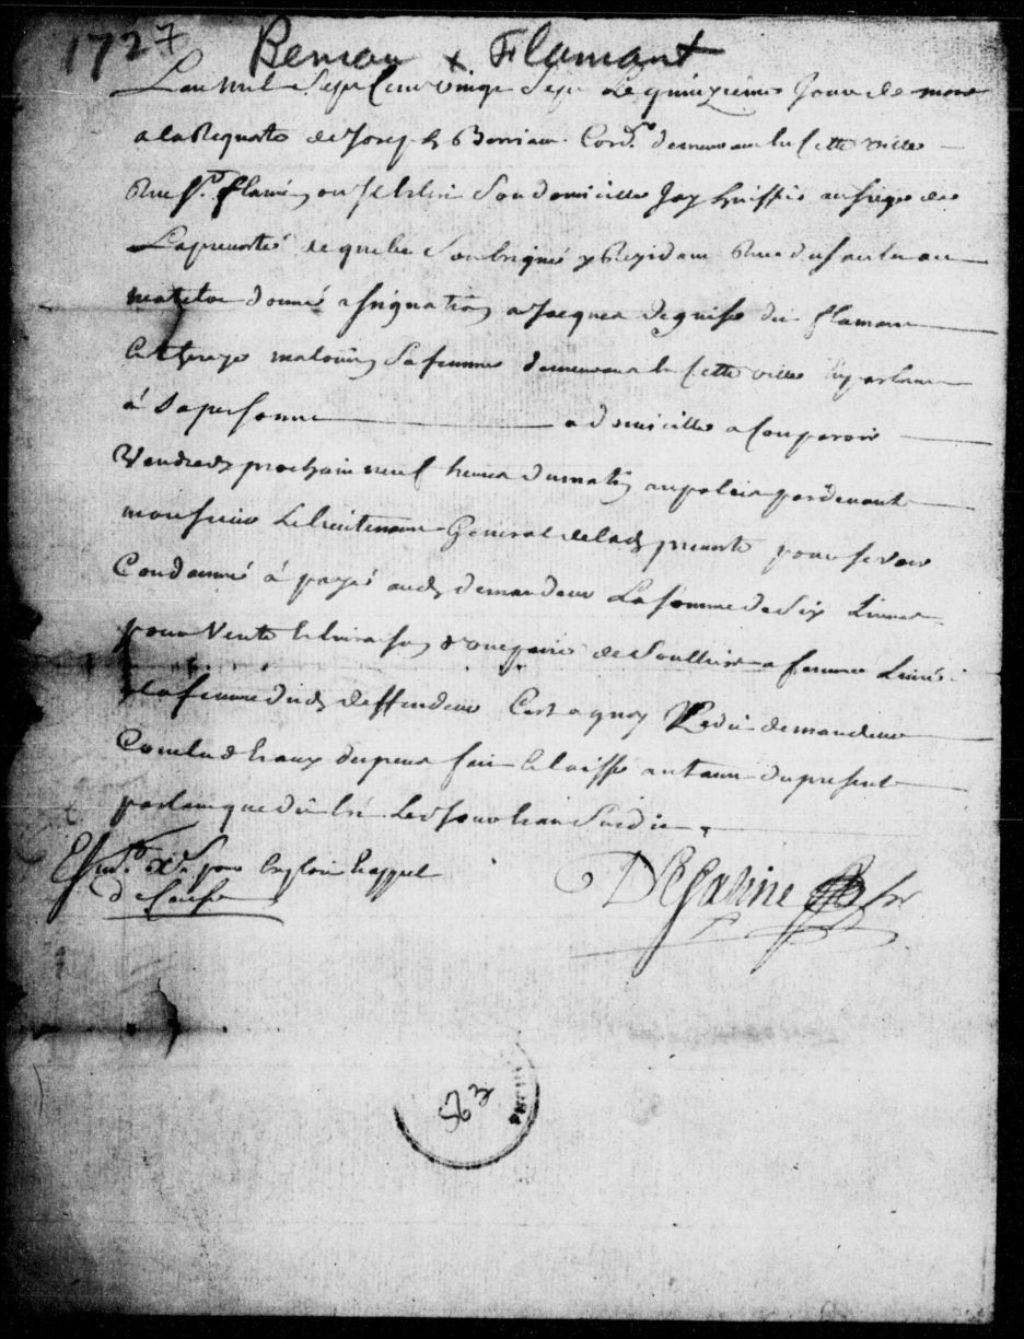 1727 Beriau x Flamant
Lan mil Sept Cent vingt Sept Le quinzieme Jour de mars
a la Requeste de Joseph Berriau Cord.r demeurant En Cette ville
Rue St. flavie, ou Il Eslit Son domicille Jay huissier au siege de
La prevosté de quebec Soubsigné y Residant Rue du sault au
matelot donné assignation a Jacques Deguise dit flamant
Et therese malouin, Sa femme demeurant En Cette ville En parlant
á Sa personne a domicille a Comparoir
Vendredy prochain neuf heures du matin au palais pardevant
monsieur Le Lieutenant General de lad. prevosté pour se voir
Condamné á payé aud. demandeur La Somme de Six Livres
pour Vente Et livraison d'une paire de Soulliers a femme Livrés
a la femme dud. deffendeur Cest a quoy Ledit demandeur
Conclud Et aux depens fait Et laissé autant du present
parlant que dit Est Led. Jour Et an Susdit.
pour Exploit Et appel
de Cause
563